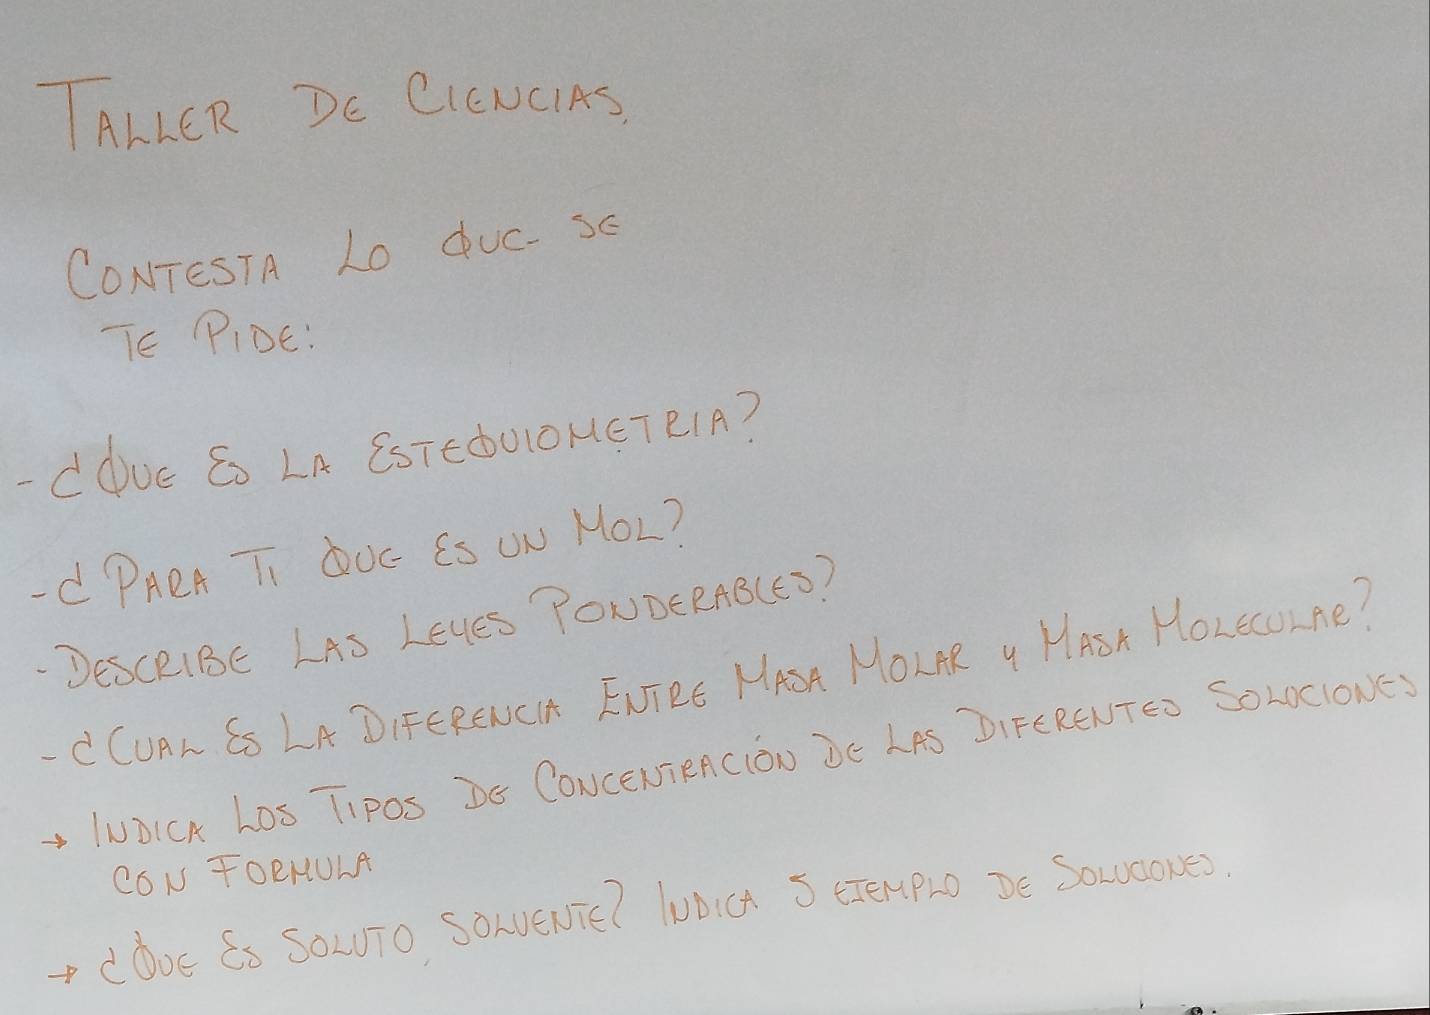 TALLER DE CIENCIAS.
CONTESTA LO QUE SE
TE PIDE:
- ¿QUE ES LA ESTEQUIOMETRIA?
- ¿PARA TI QUE ES UN MOL?
- DESCRIBE LAS LEYES PONDERABLES?
- ¿CUAL ES LA DIFERENCIA ENTRE MASA MOLAR Y MASA MOLECULAR?
→ INDICA LOS TIPOS DE CONCENTRACIÓN DE LAS DIFERENTES SOLUCIONES
CON FORMULA
→ ¿QUE ES SOLUTO, SOLVENTE? INDICA 5 EJEMPLO DE SOLUCIONES.